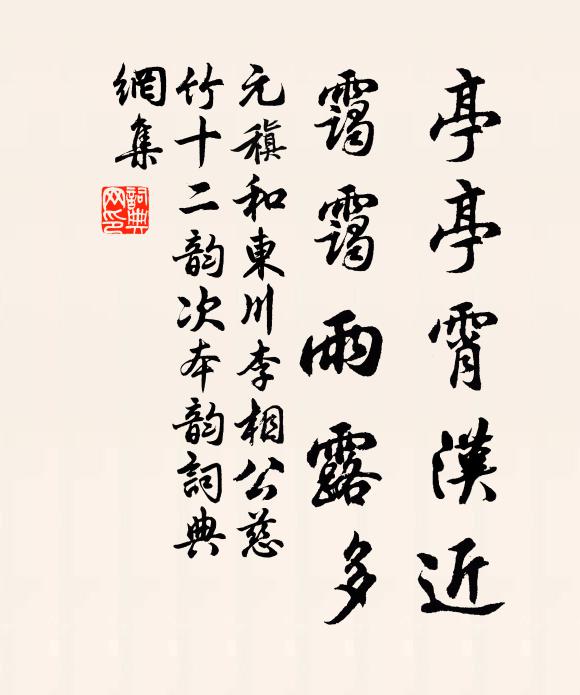 亭亭霄漢近
靄靄雨露多
元稹和東川李相公慈
竹十二韵次本韵詞典
網集
詞典网印